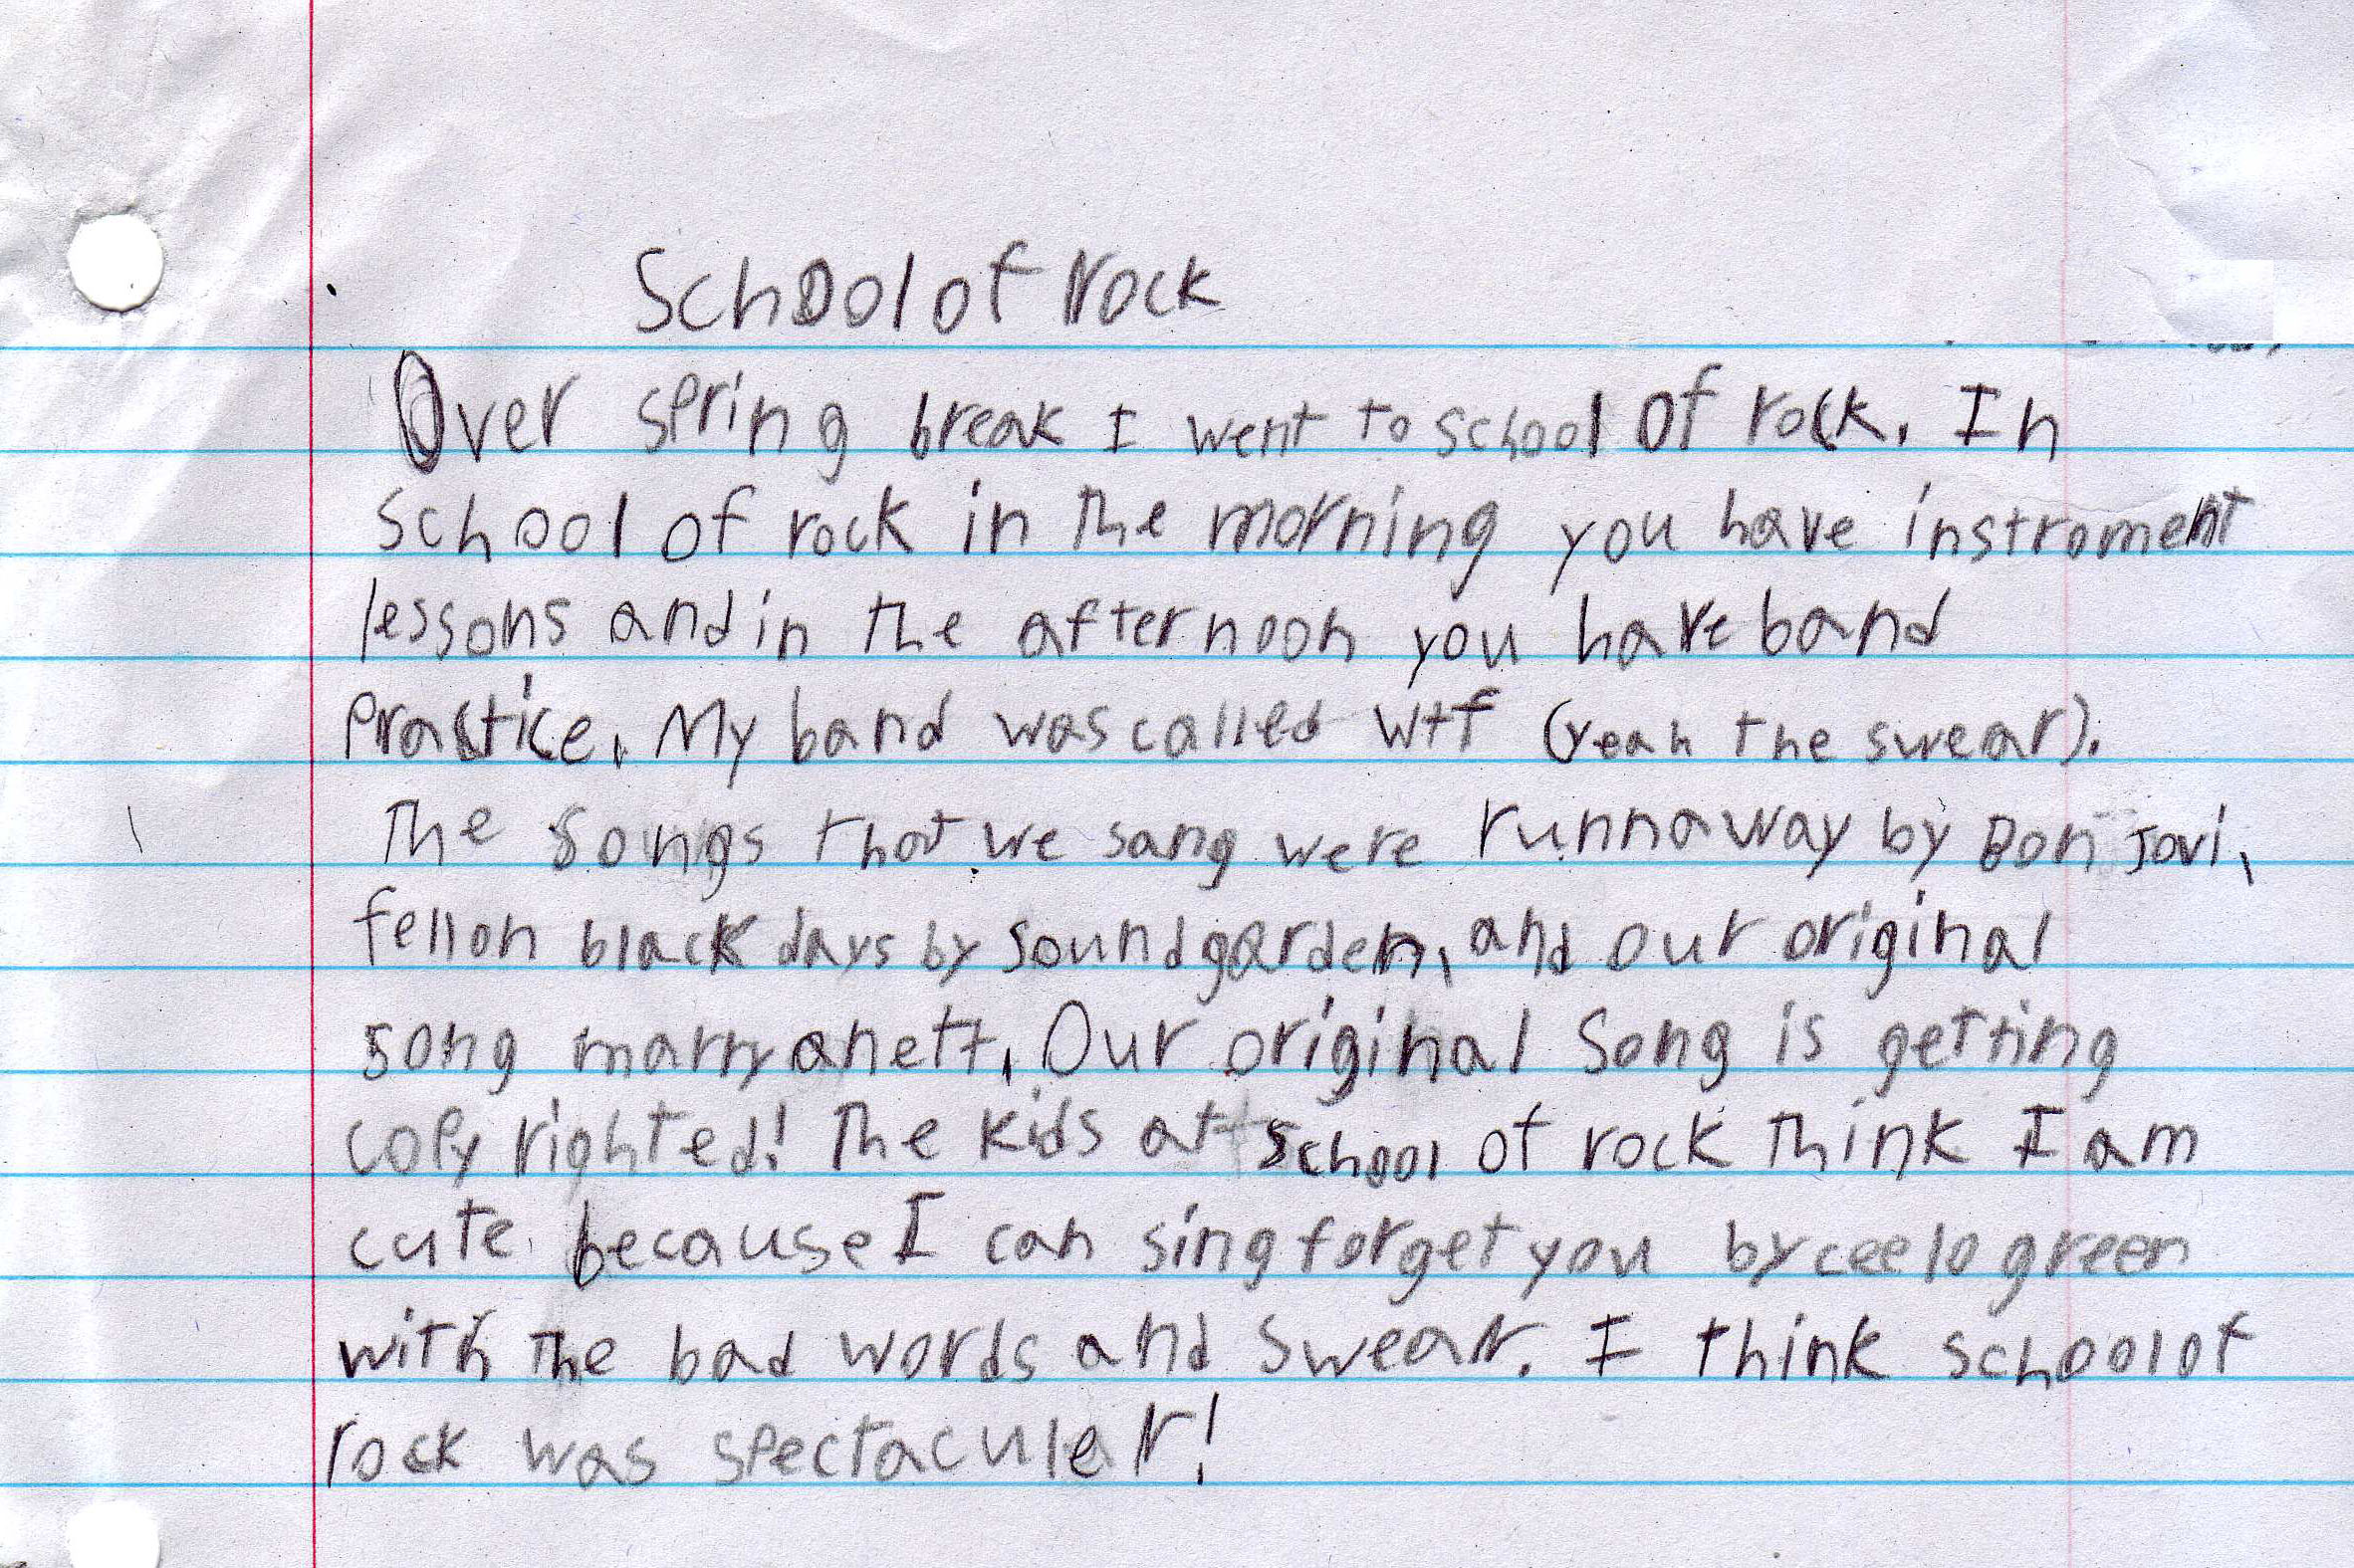 School of rock
Over spring break I went to school of rock. In
school of rock in the morning you have instroment
lessons and in the afternoon you have band
practice. My band was called wtf (yeah the swear).
The songs that we sang were runnaway by Bon Jovi,
fell on black days by soundgarden, and our original
song marryanett. Our original song is getting
copy righted! The kids at school of rock think I am
cute because I can sing forget you by cee lo green
with the bad words and swear. I think school of
rock was spectaculer!